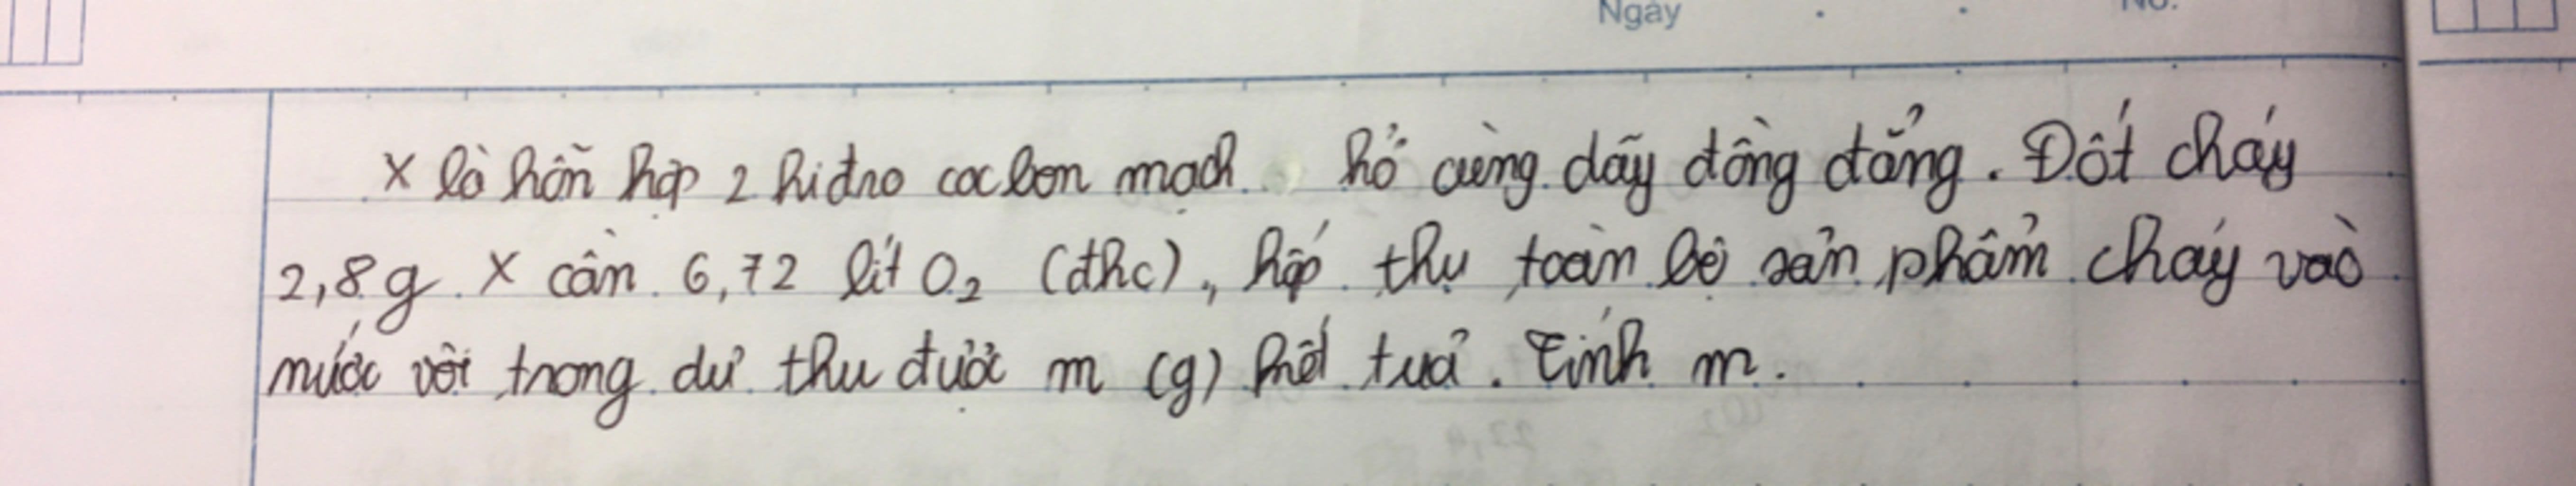 Ngày No:
X là hỗn hợp 2 hiđro cacbon mạch hở cùng dãy đồng đẳng. Đốt cháy
2,8g X cần 6,72 lít O₂ (đkc), hấp thụ toàn bộ sản phẩm cháy vào
nước vôi trong dư thu được m (g) kết tuả. Tính m.